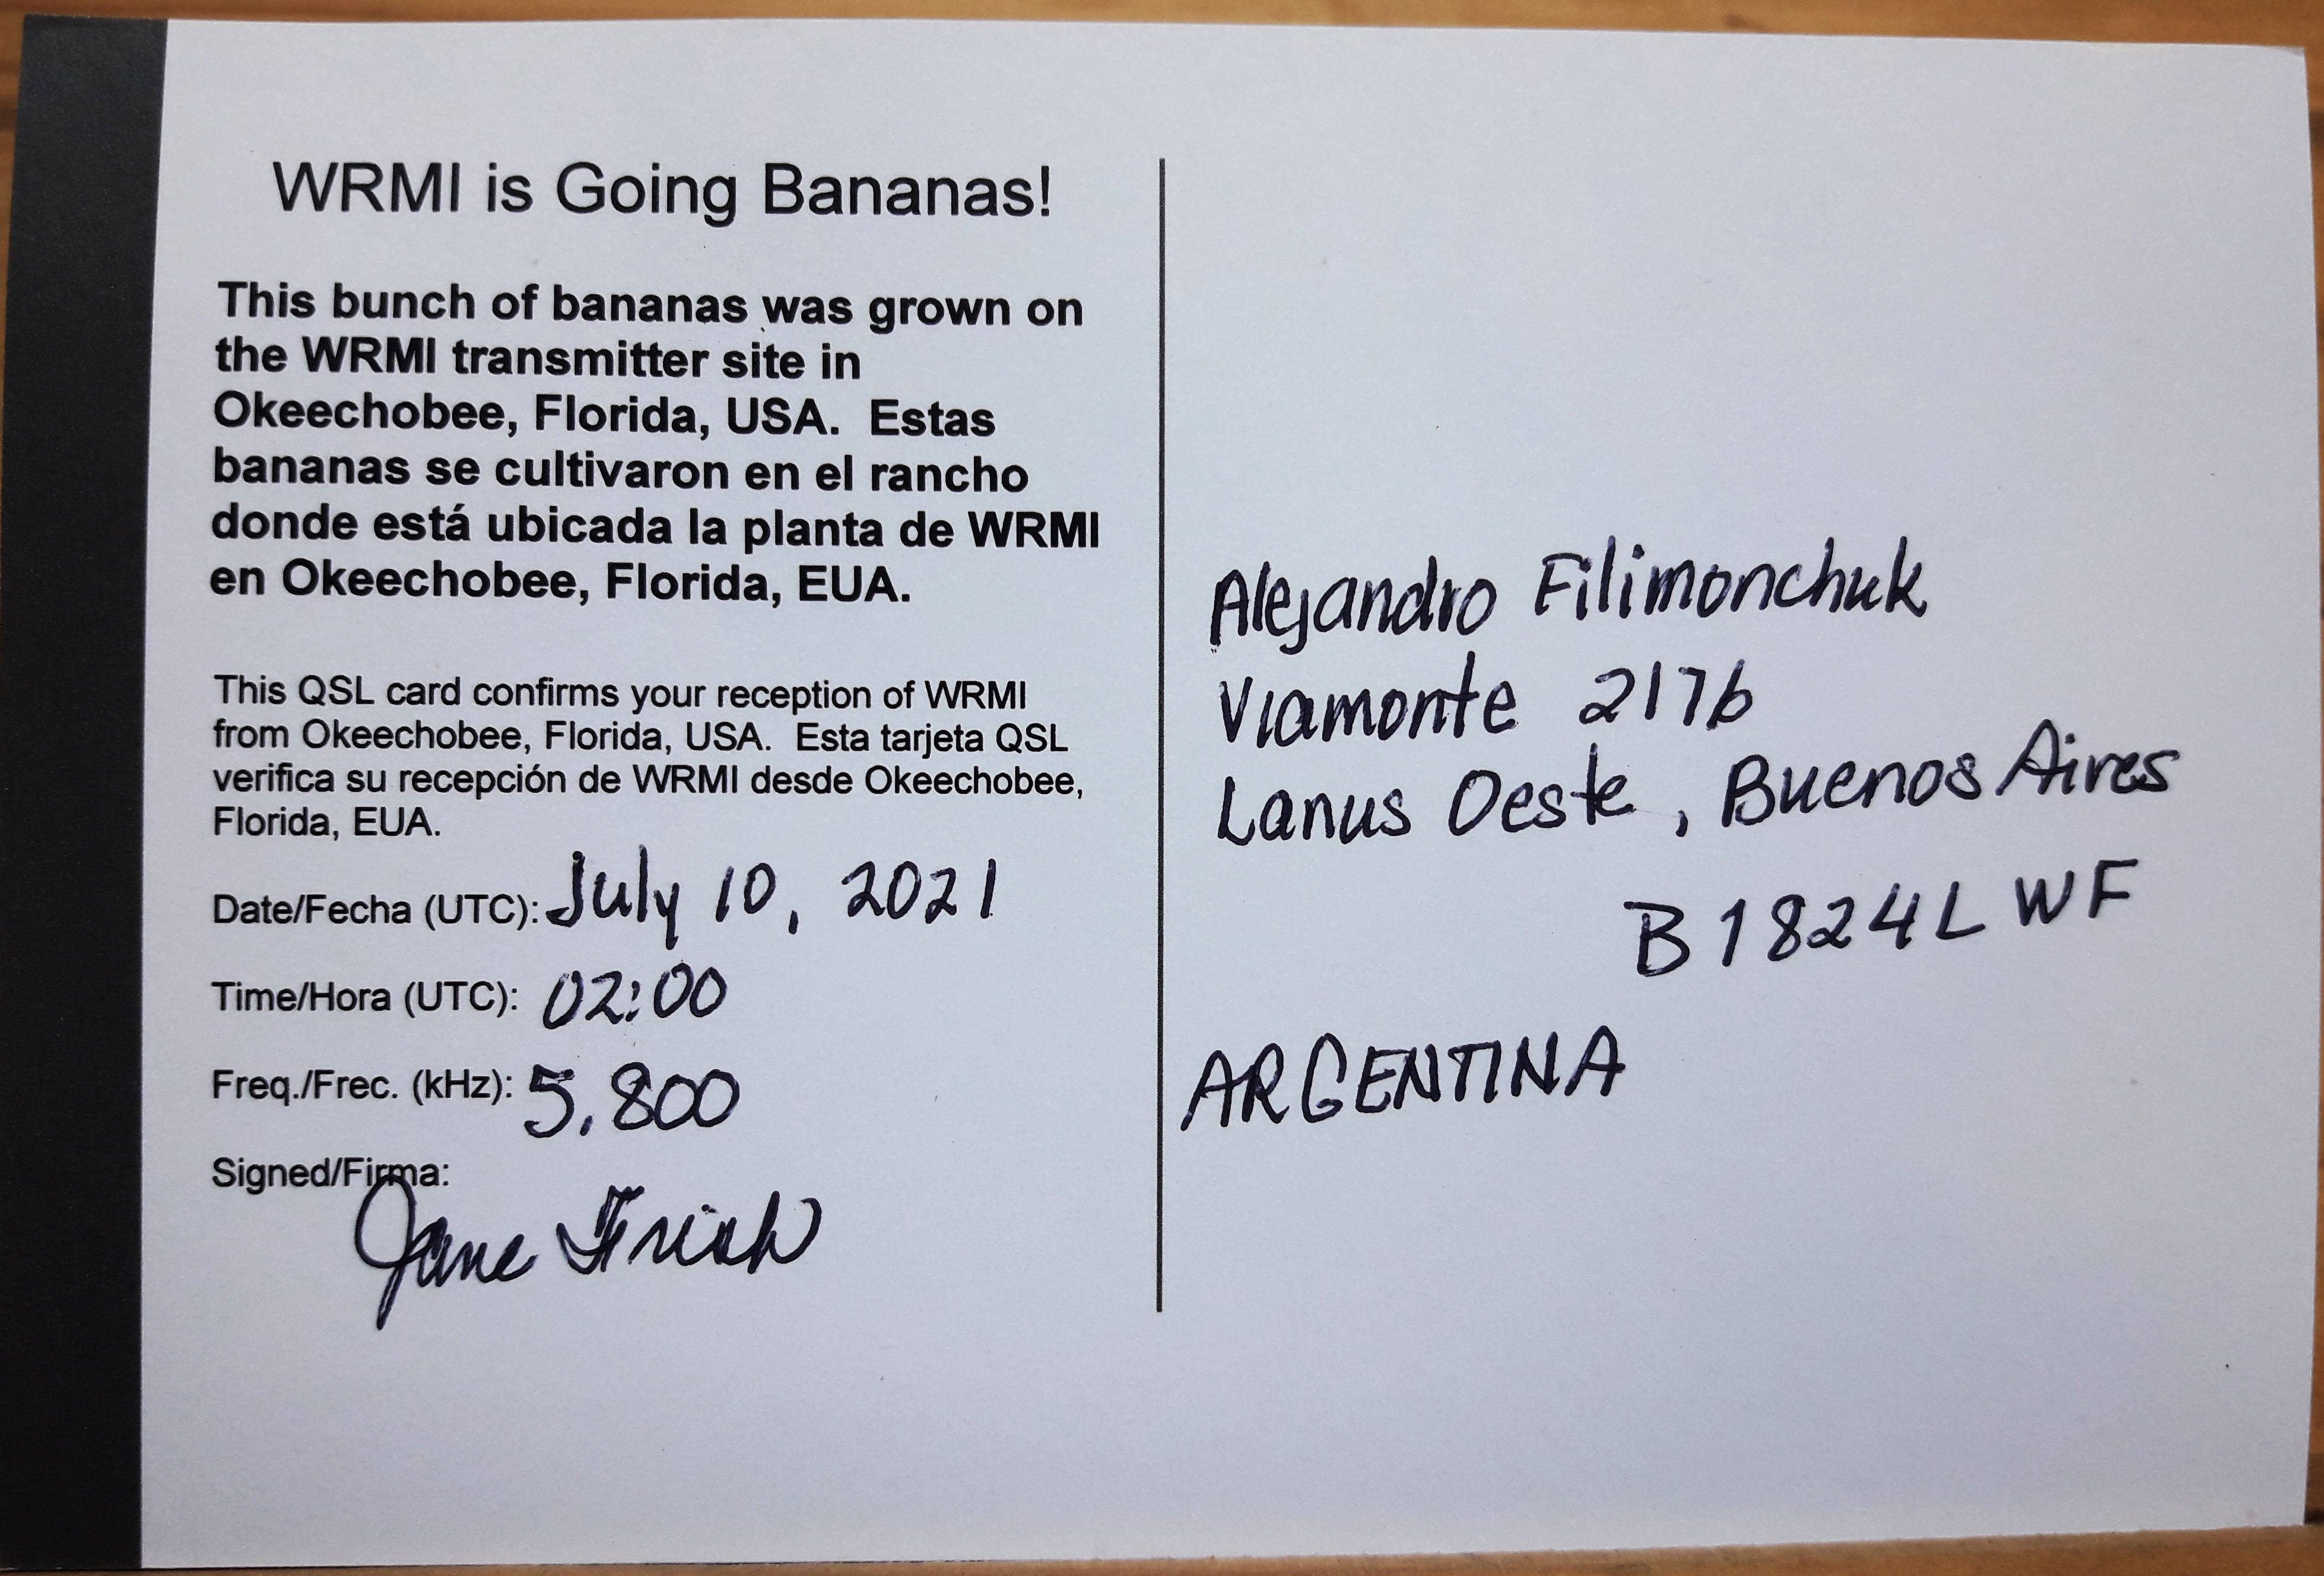 WRMI is Going Bananas!
This bunch of bananas was grown on
the WRMI transmitter site in
Okeechobee, Florida, USA.  Estas
bananas se cultivaron en el rancho
donde está ubicada la planta de WRMI
en Okeechobee, Florida, EUA.
This QSL card confirms your reception of WRMI
from Okeechobee, Florida, USA.  Esta tarjeta QSL
verifica su recepción de WRMI desde Okeechobee,
Florida, EUA.
Date/Fecha (UTC): July 10, 2021
Time/Hora (UTC): 02:00
Freq./Frec. (kHz): 5,800
Signed/Firma:
Jane
Alejandro Filimonchuk
Viamonte 2176
Lanus Oeste, Buenos Aires
B1824LWF
ARGENTINA